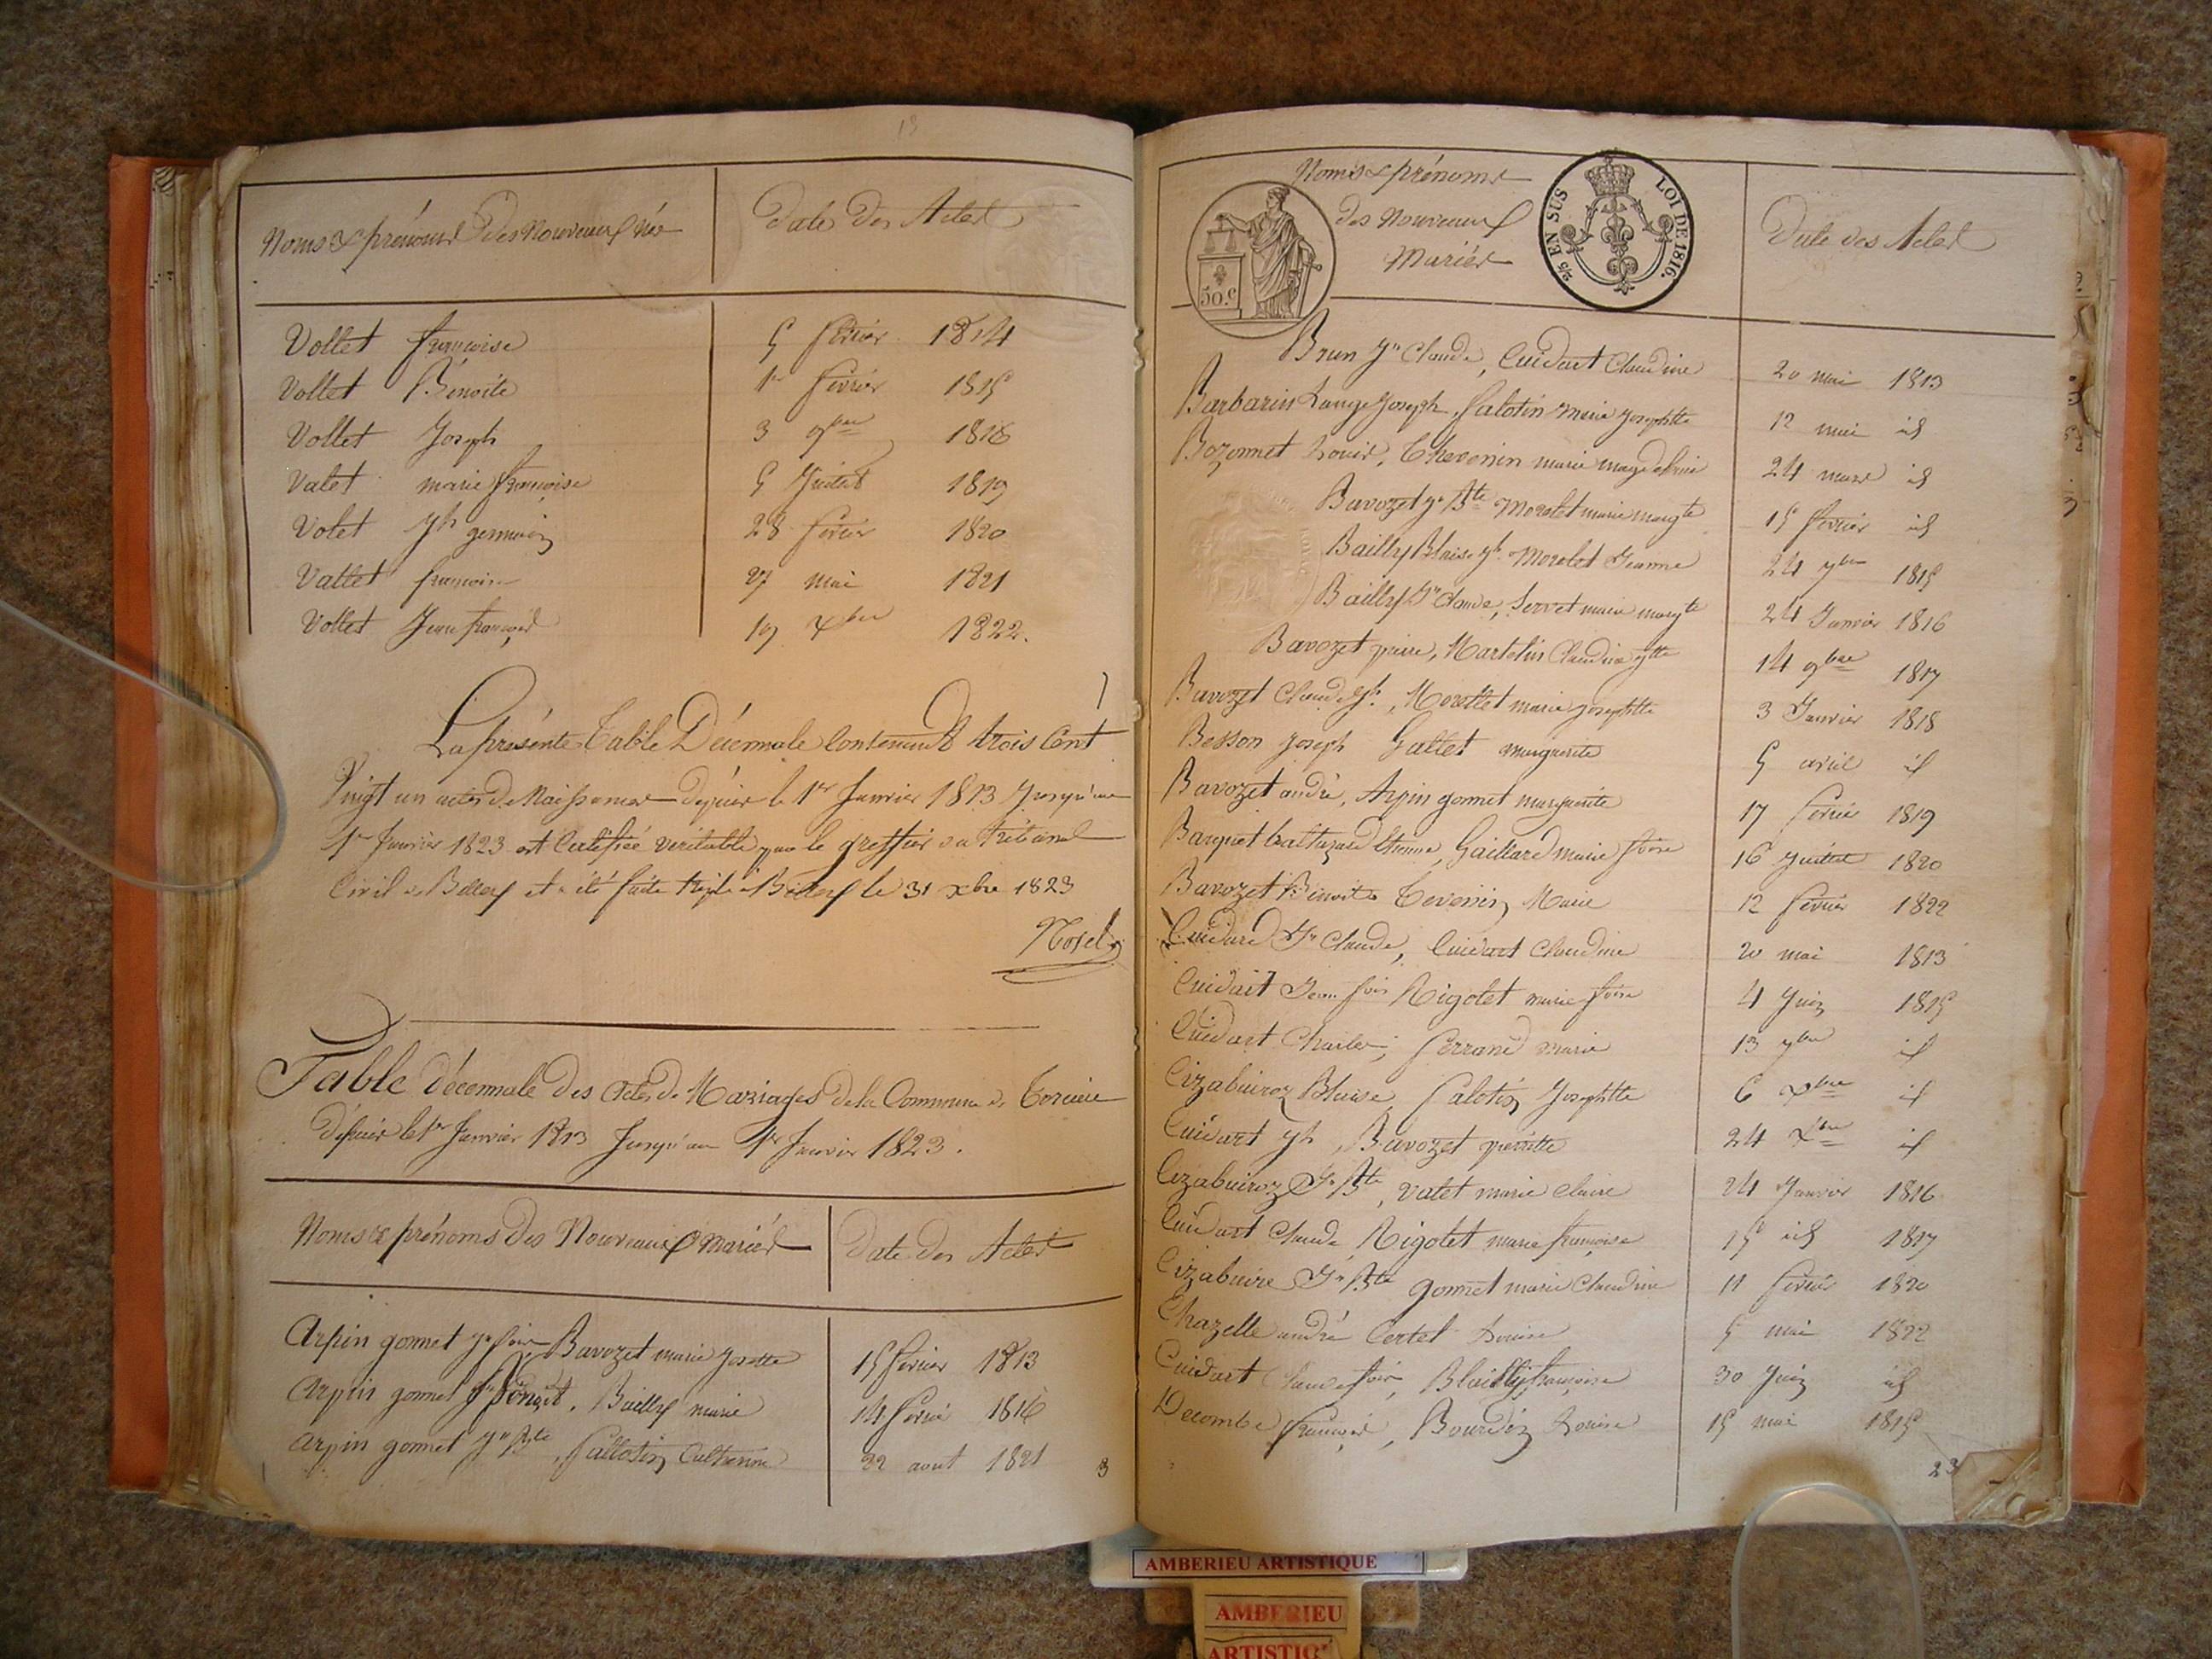 13
Noms & prénoms Des Nouveaux Nés
Date Des Actes
Vollet françoise 5 février 1814
Vollet Bénoite 1er février 1815
Vollet Joseph 3 9bre 1816
Valet marie françoise 5 Juillet 1819
Volet Jh germain 28 février 1820
Vallet françoise 27 mai 1821
Vollet Jean françois 19 xbre 1822.
La présente Table Décennale Contenant trois Cent
Vingt un actes de Naissances depuis le 1er Janvier 1813 Jusqu'au
1er Janvier 1823 est Certifiée véritable par le greffier du Tribunal
Civil de Belley et a été faite à Belley le 31 xbre 1823
Table Décennale des Actes de Mariages de la Commune de
depuis le 1er Janvier 1813 Jusqu'au 1er Janvier 1823.
Noms & prénoms Des Nouveaux Mariés
Date Des Actes
Arpin gonnet Jn fois Bavozet marie Josette 15 février 1813
Arpin gonnet Benoit, Bailly marie 14 février 1816
Arpin gonnet Jn Bte, fallotin Catherine 22 aout 1821
3
Noms & prénoms
des Nouveaux
Mariés
Date des Actes
50.c
2/5 EN SUS LOI DE 1816.
Brun Jn Claude, Cuidart Claudine 20 mai 1813
Barbarin Joseph, falotin marie Josephtte 12 mai id
Bozonnet Louis, Thevenin marie magdelaine 24 mars id
Bavozet Jn Bte Morelet marie margte 15 février id
Bailly Blaise Jh Morelet Jeanne 24 7bre 1815
Bailly Jn Claude, Servet marie margte 24 Janvier 1816
Bavozet pierre, Martelin Claudine 14 9bre 1817
Bavozet Claude Jh, Morellet marie Josephtte 3 Janvier 1818
Besson Joseph Gallet marguerite 5 avril id
Bavozet andré, Arpin gonnet marguerite 17 février 1819
Barquet Balthazard Etienne, Gaillard marie foise 16 Juillet 1820
Bavozet Benoit Tevenin Marie 12 février 1822
Cuidard Jn Claude, Cuidart Claudine 20 mai 1813
Cuidart Jean fois Rigolet marie foise 4 Juin 1815
Cuidart Charles, ferrand marie 13 7bre id
Cizabuiroz Blaise, falotin Josephtte 6 xbre id
Cuidart Jh, Bavozet pierrette 24 xbre id
Cizabuiroz Jn Bte, valet marie Claire 24 Janvier 1816
Cuidart Claude Rigolet marie françoise 15 id 1817
Cizabuire Jn Bte gonnet marie Claudine 11 février 1820
Chazelle andré Certet Louise 5 mai 1822
Cuidart Claude fois, Blailly françoise 30 Juin id
Decombe françois, Bourdin Louise 15 mai 1815
23
AMBERIEU ARTISTIQUE
AMBERIEU
ARTISTIQ